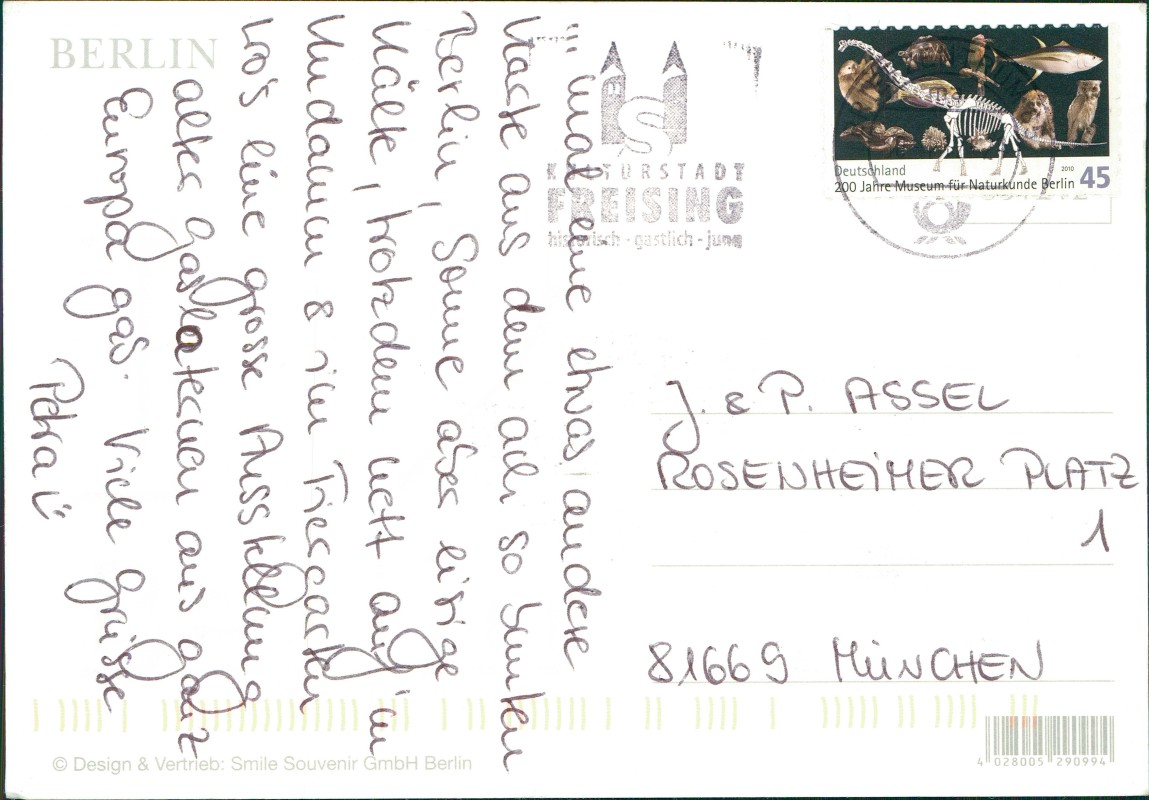 BERLIN
'mal eine etwas andere
Karte aus dem ach so bunten
Berlin, Sonne aber eisige
Kälte, trotzdem nett auf'm
Kudamm & im Tiergarten
wo's eine grosse Ausstellung
alter Gaslaternen aus ganz
Europa gab. Viele Grüsse
Petra
© Design & Vertrieb: Smile Souvenir GmbH Berlin
KULTURSTADT
FREISING
historisch - gastlich - jung
Deutschland
2010
200 Jahre Museum für Naturkunde Berlin 45
J. & P. ASSEL
ROSENHEIMER PLATZ
1
81669 MÜNCHEN
4 028005 290994